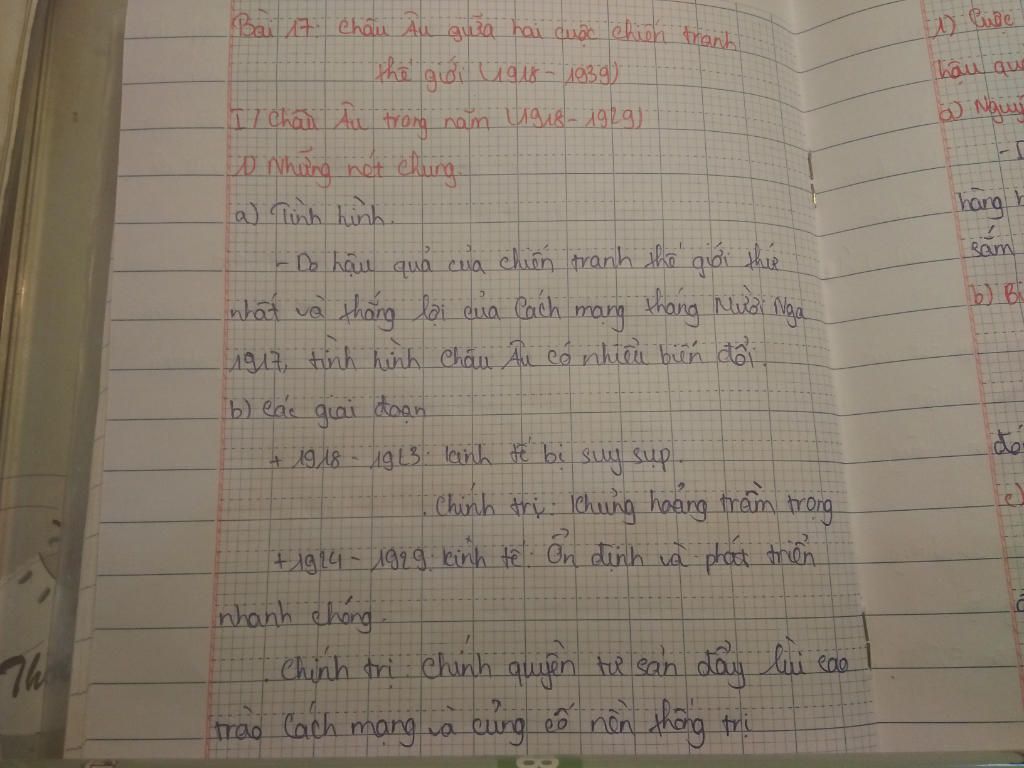 Bài 17: Châu Âu giữa hai cuộc chiến tranh
thế giới (1918 - 1939)
I/ Châu Âu trong năm (1918 - 1929)
1) Những nét chung.
a) Tình hình.
- Do hậu quả của chiến tranh thế giới thứ
nhất và thắng lợi của Cách mạng tháng Mười Nga
1917, tình hình Châu Âu có nhiều biến đổi.
b) Các giai đoạn
+ 1918 - 1923. kinh tế bị suy sụp.
. Chính trị: Khủng hoảng trầm trọng
+ 1924 - 1929. kinh tế: Ổn định và phát triển
nhanh chóng.
. Chính trị: Chính quyền tư sản đẩy lùi cao
trào Cách mạng và củng cố nền thống trị
1) Cuộc
hậu qu
a) Nguy
hàng
sắm
b)
c)
Th